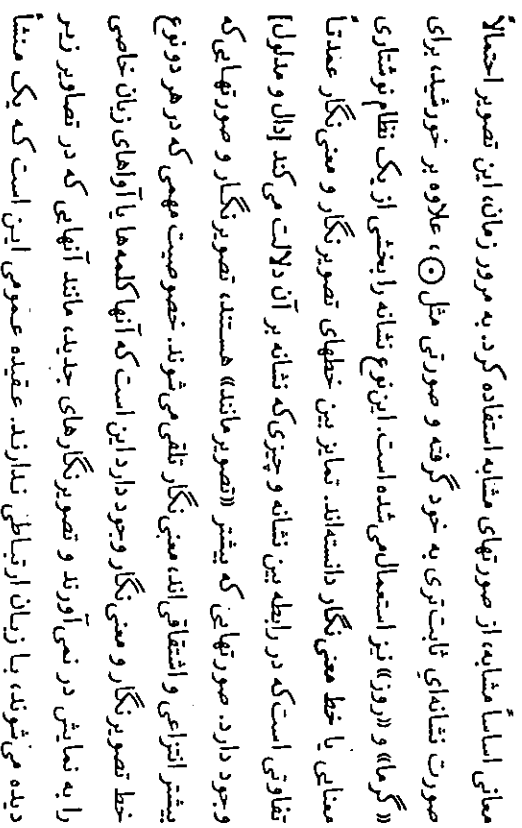 معانی اساساً مشابه، از صورتهای مشابه استفاده کرد. به مرور زمان، این تصویر احتمالاً
صورت نشانه‌ای ثابت‌تری به خود گرفته و صورتی مثل ⊙، علاوه بر خورشید، برای
«گرما» و «روز» نیز استعمال می‌شده است. این نوع نشانه را بخشی از یک نظام نوشتاری
معنایی یا خط معنی نگار دانسته‌اند. تمایز بین خطهای تصویر نگار و معنی نگار عمدتاً
تفاوتی است که در رابطه بین نشانه و چیزی که نشانه بر آن دلالت می‌کند [دال و مدلول]
وجود دارد. صورتهایی که بیشتر «تصویر مانند» هستند، تصویر نگار و صورتهایی که
بیشتر انتزاعی و اشتقاقی‌اند، معنی نگار تلقی می‌شوند. خصوصیت مهمی که در هر دو نوع
خط تصویر نگار و معنی نگار وجود دارد این است که آنها کلمه‌ها یا آواهای زبان خاصی
را به نمایش در نمی‌آورند و تصویر نگارهای جدید، مانند آنهایی که در تصاویر زیر
دیده می‌شوند، با زبان ارتباطی ندارند. عقیده عمومی این است که یک منشأ